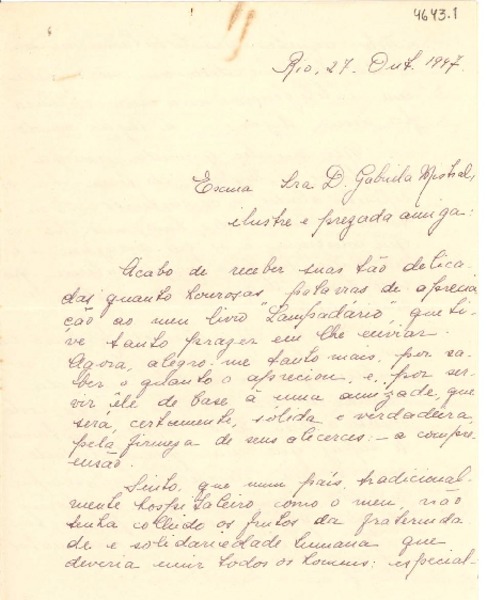 4643.1
Rio, 27. Out. 1947.
Exma Sra D. Gabriela Mistral,
ilustre e prezada amiga:
Acabo de receber suas tão delica
das quanto honrosas palavras de aprecia
ção ao meu livro "Lampadário", que ti-
ve tanto prazer em lhe enviar.
Agora, alegro-me tanto mais, por sa-
ber o quanto o apreciou, e, por ser-
vir êle de base à uma amizade, que
será, certamente, sólida e verdadeira,
pela firmeza de seus alicerces: - a compre
ensão.
Sinto que num país, tradicional-
mente hospitaleiro como o meu, não
tenha colhido os frutos da fraternida
de e solidariedade humana que
deveria unir todos os homens: especial-